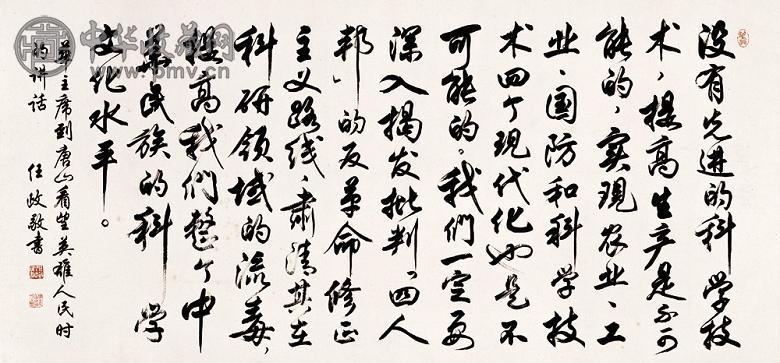 没有先进的科学技
术，提高生产是不可
能的，实现农业、工
业、国防和科学技
术四个现代化也是不
可能的。我们一定要
深入揭发批判“四人
邦”的反革命修正
主义路线，肃清其在
科研领域的流毒，
提高我们整个中
华民族的科学
文化水平。
华主席到唐山看望英雄人民时
的讲话 任政敬书
中华收藏网
www.pmv.cn